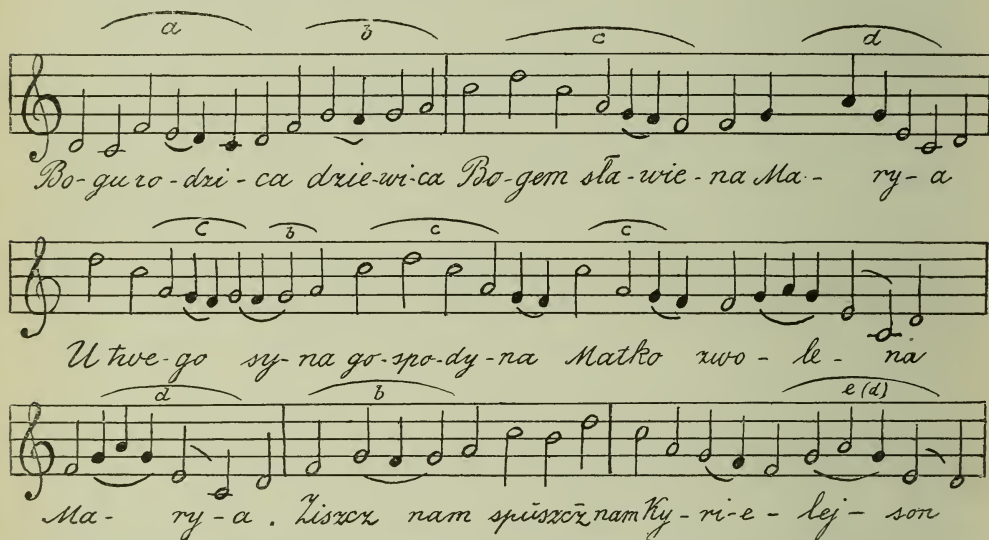 a b c d
Bo-gu ro-dzi-ca dzie-wi-ca Bo-gem sła-wie-na Ma-ry-a
c b c c
U twe-go sy-na go-spo-dy-na Matko zwo-le-na
d b e (d)
Ma-ry-a. Ziszcz nam spuszcz nam Ky-ri-e-lej-son